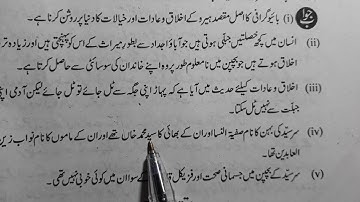 جواب (i) بائیوگرافی کا اصل مقصد ہیرو کے اخلاق و عادات اور خیالات کا دنیا پر روشن کرنا ہے۔
(ii) انسان میں کچھ خصلتیں جبلی ہوتی ہیں جو آباؤ اجداد سے بطور میراث کے اس کو پہنچتی ہیں اور زیادہ تر
اخلاق ہوتے ہیں جو بچپن میں نامعلوم طور پر وہ اپنے خاندان کی سوسائٹی سے حاصل کرتا ہے۔
(iii) اخلاق و عادات کیلئے حدیث میں آیا ہے کہ پہاڑ اپنی جگہ سے ٹل جائے تو ٹل جائے لیکن آدمی اپنی
جبلت سے نہیں ٹل سکتا۔
(iv) سرسیّد کی بہن کا نام صفیۃ النسا اور ان کے بھائی کا سید محمد خاں تھے اور ان کے ماموں کا نام نواب زین
العابدین تھا۔
(v) سرسیّد کے بچپن میں جسمانی صحت اور فزیکل کے سوا ان میں کوئی خوبی نہیں تھی۔